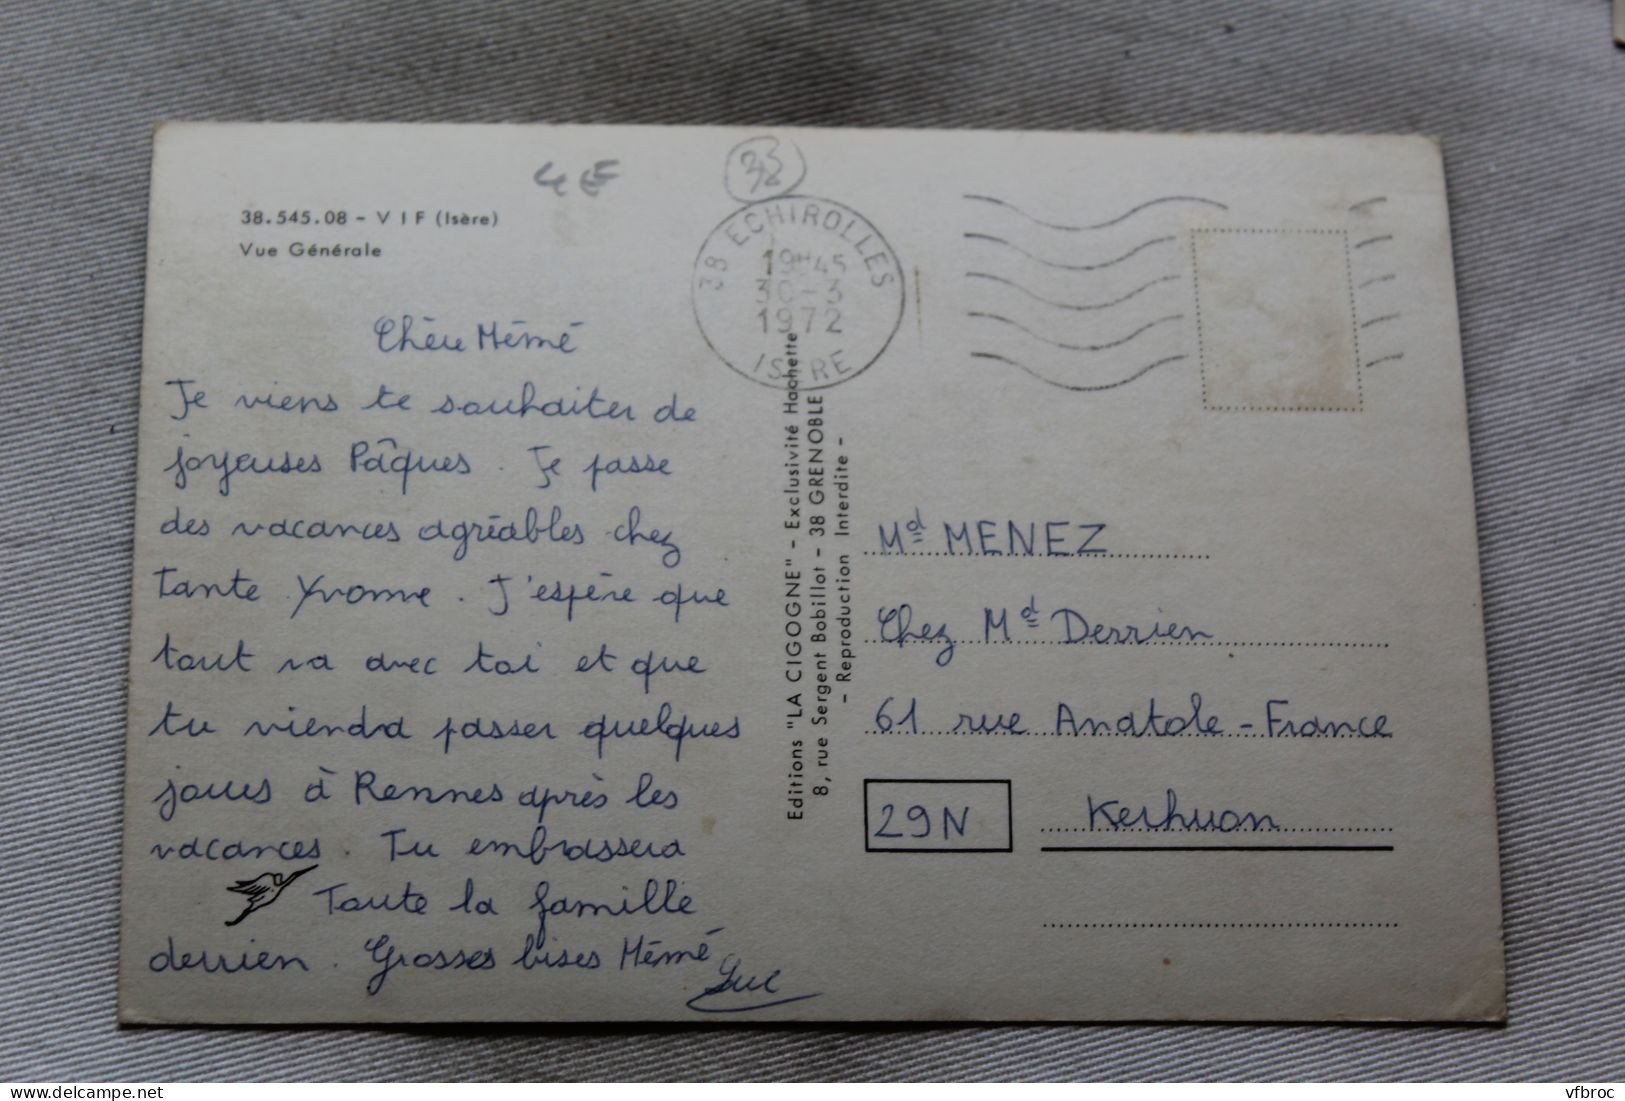 4€
38
38.545.08 - VIF (Isère)
Vue Générale
38 ECHIROLLES
19H45
30-3
1972
ISERE
Chère Mémé
Je viens te souhaiter de
joyeuses Pâques. Je passe
des vacances agréables chez
tante Yvonne. J'espère que
tout va avec toi et que
tu viendra passer quelques
jours à Rennes après les
vacances. Tu embrassera
Toute la famille
derrien. Grosses bises Mémé
Luc
Editions "LA CIGOGNE" - Exclusivité Hachette
8, rue Sergent Bobillot - 38 GRENOBLE
- Reproduction Interdite -
Md MENEZ
Chez Md Derrien
61 rue Anatole-France
29N Kerhuon
vfbroc